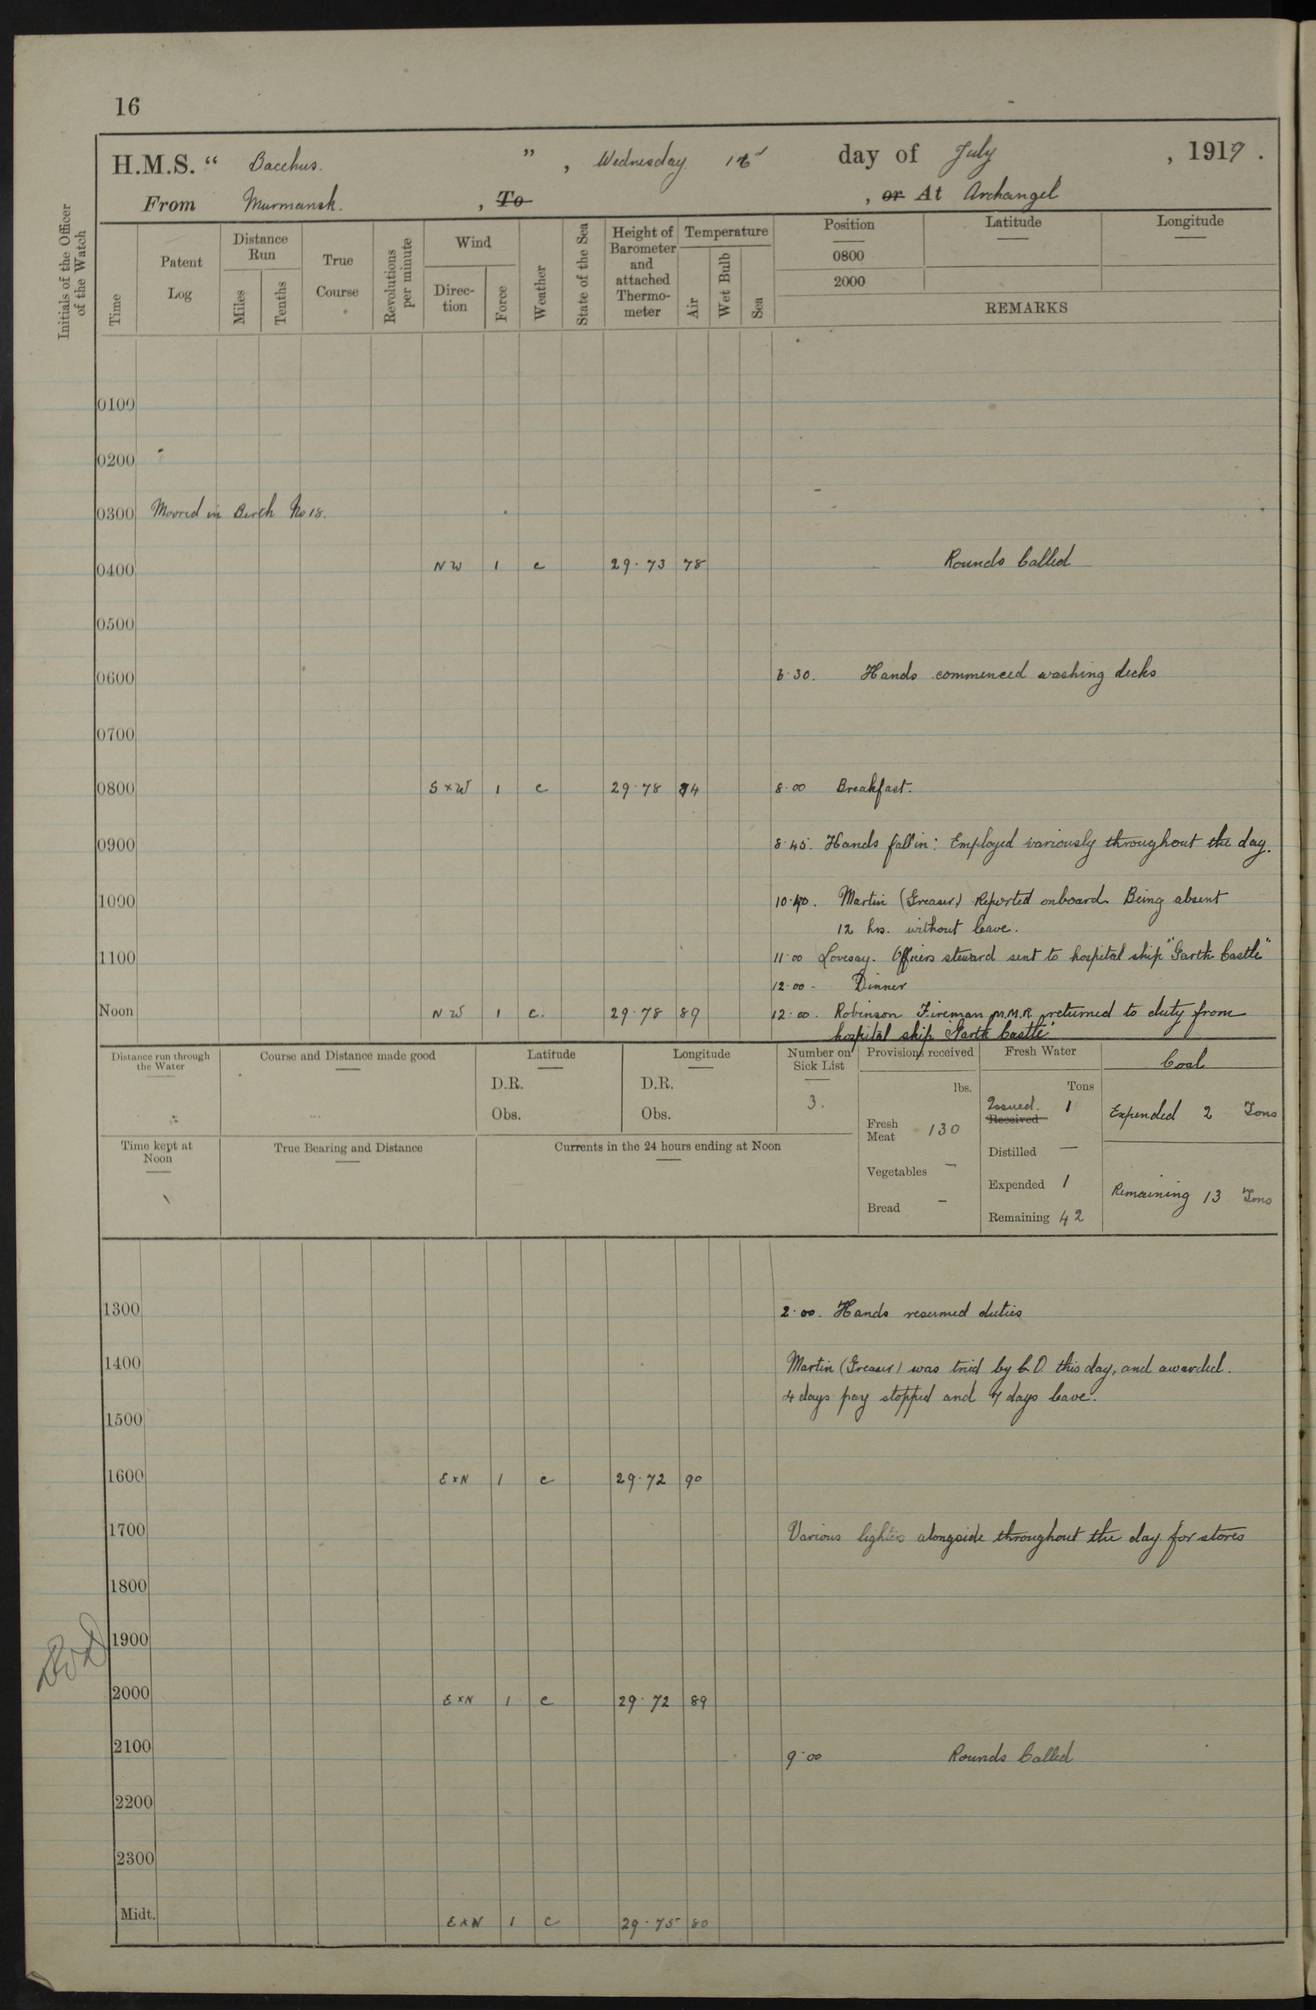 16
H.M.S. “ Bacchus. ” , Wednesday 16 day of July , 1919 .
From Murmansk. , To , or At Archangel
Initials of the Officer of the Watch
Time
Patent Log
Distance Run
Miles
Tenths
True Course
Revolutions per minute
Wind
Direc- tion
Force
Weather
State of the Sea
Height of Barometer and attached Thermo- meter
Temperature
Air
Wet Bulb
Sea
Position
Latitude
Longitude
0800
2000
REMARKS
0100
0200
0300 Moored in Berth No 18.
0400 NW 1 c 29.73 78 Rounds Called
0500
0600 6.30. Hands commenced washing decks
0700
0800 S x W 1 c 29.78 84 8.00 Breakfast.
0900 8.45. Hands fallin: Employed variously throughout the day.
1000 10.40. Martin (Greaser) Reported onboard. Being absent
12 hrs. without leave.
1100 11.00 Lovesay. Officers steward sent to hospital ship "Garth Castle"
12.00 - Dinner
Noon NW 1 c. 29.78 89 12.00. Robinson Fireman M.M.R. returned to duty from
hospital ship "Garth Castle"
Distance run through the Water
Course and Distance made good
Latitude
D.R.
Obs.
Longitude
D.R.
Obs.
Number on Sick List
3.
Provisions received
lbs.
Fresh Meat 130
Vegetables -
Bread -
Fresh Water
Tons
Issued. Received 1
Distilled —
Expended 1
Remaining 42
Coal
Expended 2 Tons
Remaining 13 Tons
Time kept at Noon
True Bearing and Distance
Currents in the 24 hours ending at Noon
1300 2.00. Hands resumed duties
1400 Martin (Greaser) was tried by C.O. this day, and awarded.
4 days pay stopped and 7 days leave.
1500
1600 E x N 1 c 29.72 90
1700 Various lighters alongside throughout the day for stores
1800
1900
2000 E x N 1 c 29.72 89
2100 9.00 Rounds Called
2200
2300
Midt. E x N 1 c 29.75 80